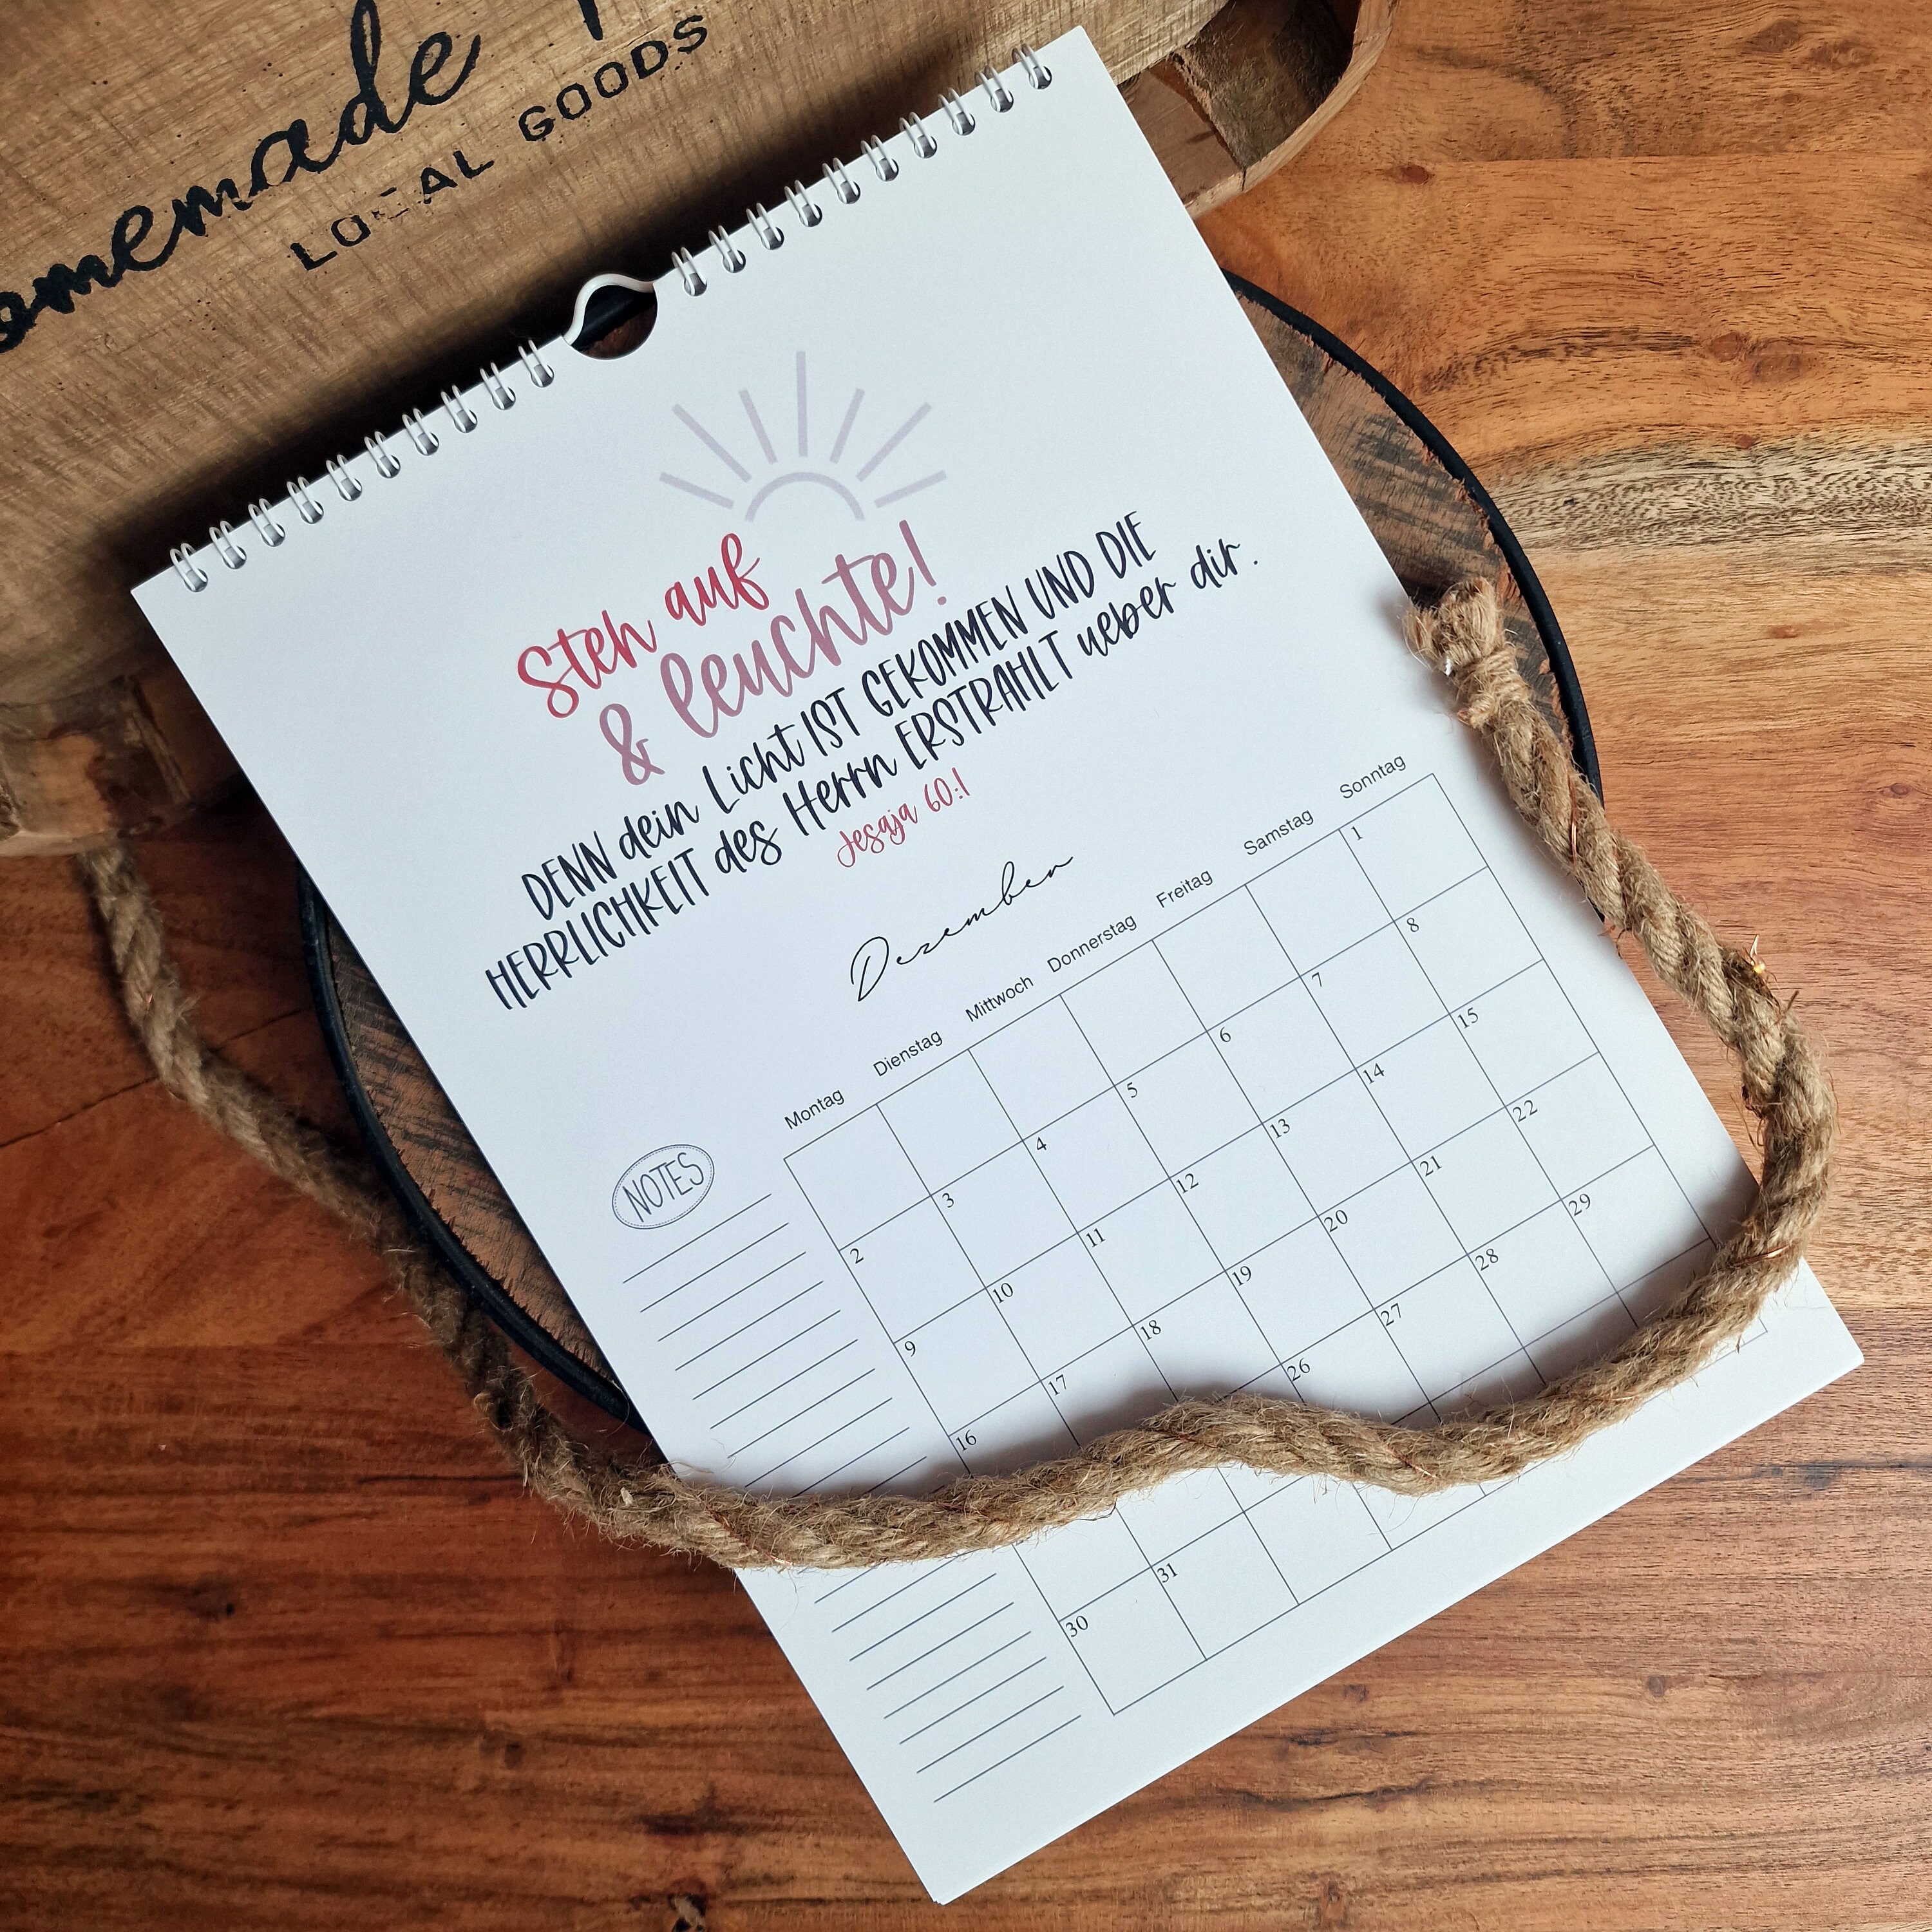 omemade
LOCAL GOODS
Steh auf
& leuchte!
DENN dein Licht IST GEKOMMEN UND DIE
HERRLICHKEIT des Herrn ERSTRAHLT ueber dir.
Jesaja 60:1
Dezember
Montag Dienstag Mittwoch Donnerstag Freitag Samstag Sonntag
NOTES
1
2 3 4 5 6 7 8
9 10 11 12 13 14 15
16 17 18 19 20 21 22
26 27 28 29
30 31